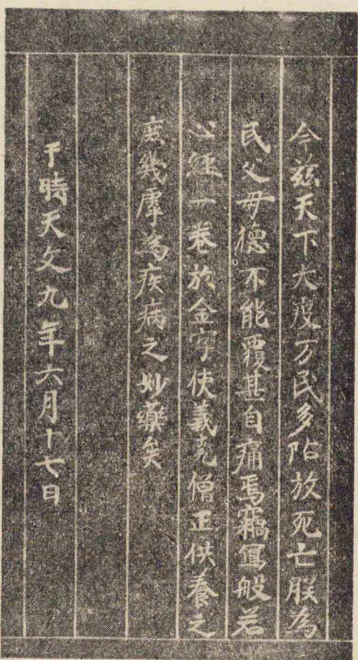 今茲天下大疫万民多阽於死亡朕為
民父母徳不能覆甚自痛焉竊寫般若
心経一巻於金字使義尭僧正供養之
庶幾虖為疾病之妙藥矣
于時天文九年六月十七日